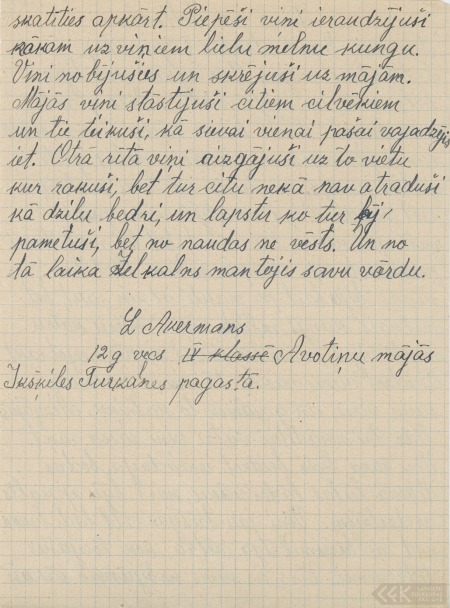 skatīties apkārt. Piepēši viņi ieraudzījuši
nākam uz viņiem lielu melnu kungu.
Viņi nobijušies un skrējuši uz mājām.
Mājās viņi stāstījuši citiem cilvēkiem
un tie teikuši, kā sievai vienai pašai vajadzējis
iet. Otrā rītā viņi aizgājuši uz to vietu
kur rakuši, bet tur citu nekā nav atraduši
kā dziļu bedri, un lapstu ko tur bij
pametuši, bet no naudas ne vēsts. Un no
tā laika Zelkalns mantojis savu vārdu.
L Akermans
12 g vecs IV klassē Avotiņu mājās
Ikšķiles Turkalnes pagastā.